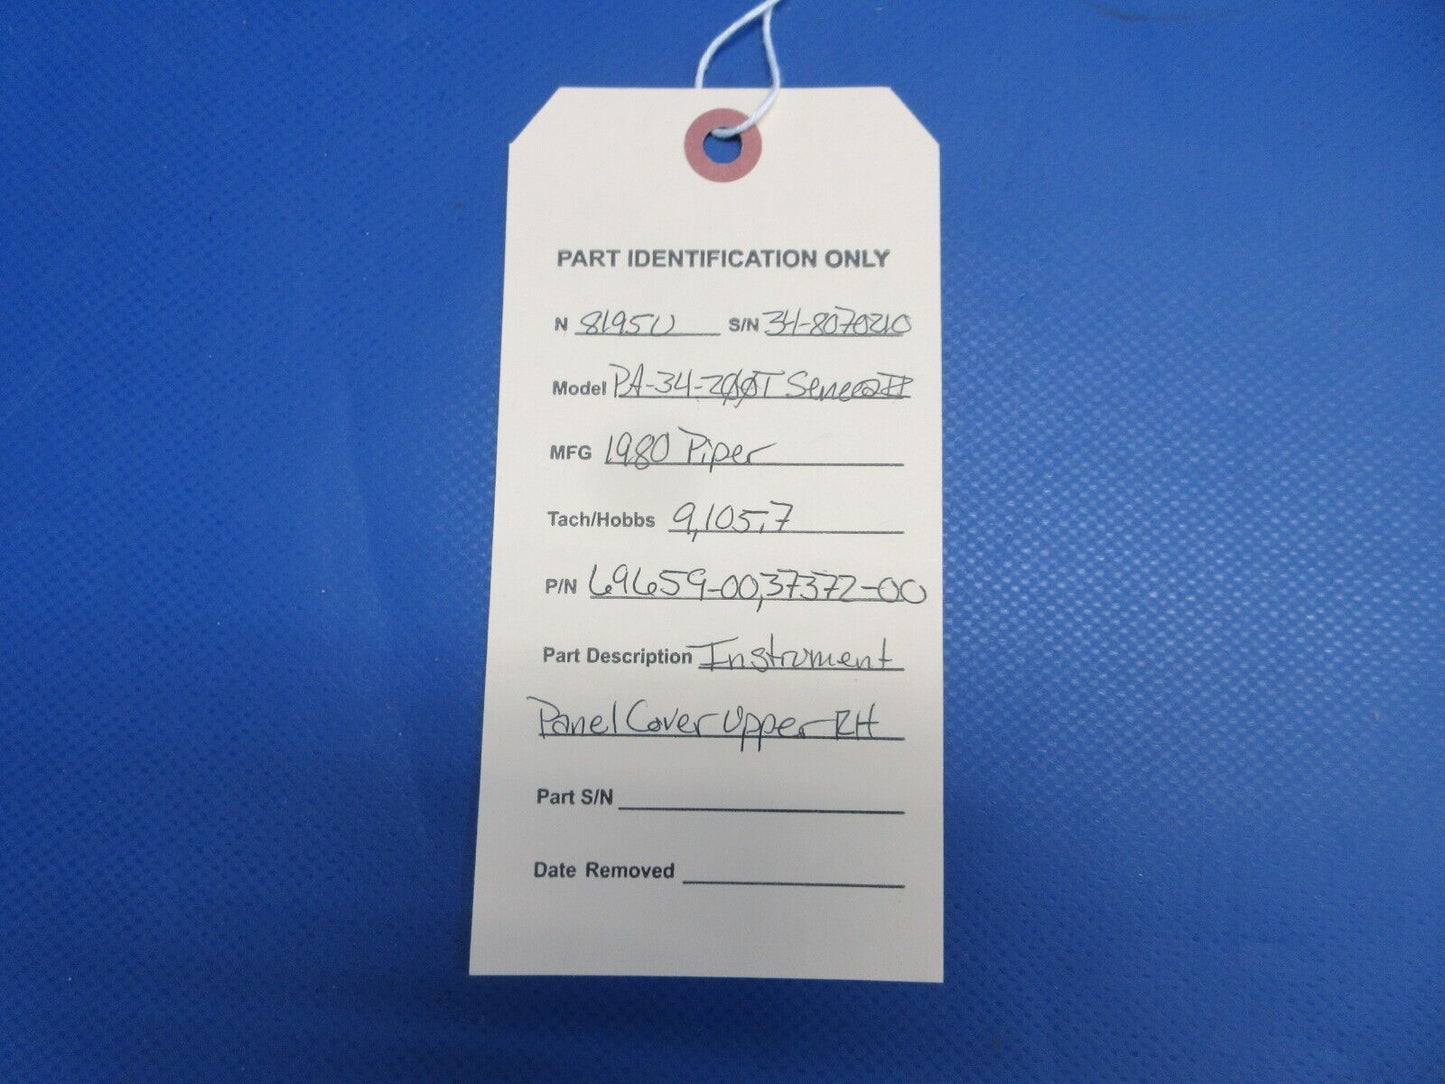 PART IDENTIFICATION ONLY
N 8195U S/N 34-8070210
Model PA-34-200T Seneca II
MFG 1980 Piper
Tach/Hobbs 9,105.7
P/N 69659-00,37372-00
Part Description Instrument
Panel Cover Upper RH
Part S/N
Date Removed